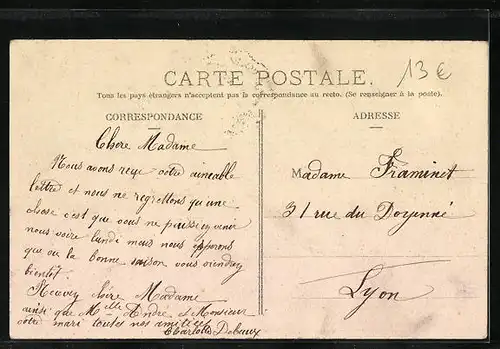 13€
CARTE POSTALE.
Tous les pays étrangers n'acceptent pas la correspondance au recto. (Se renseigner à la poste).
CORRESPONDANCE
ADRESSE
Chere Madame
Nous avons reçu votre aimeable
lettre et nous ne regrettons qu'une
chose c'est que vous ne puissiez venir
nous voire lundi mais nous esperons
que a la bonne saison vous viendrez
bientôt.
Recevez chère Madame
ainsi que Mlle Andre et Monsieur
votre mari toutes nos amitiées
Charlotte
Madame Framinet
31 rue du Doyenné
Lyon